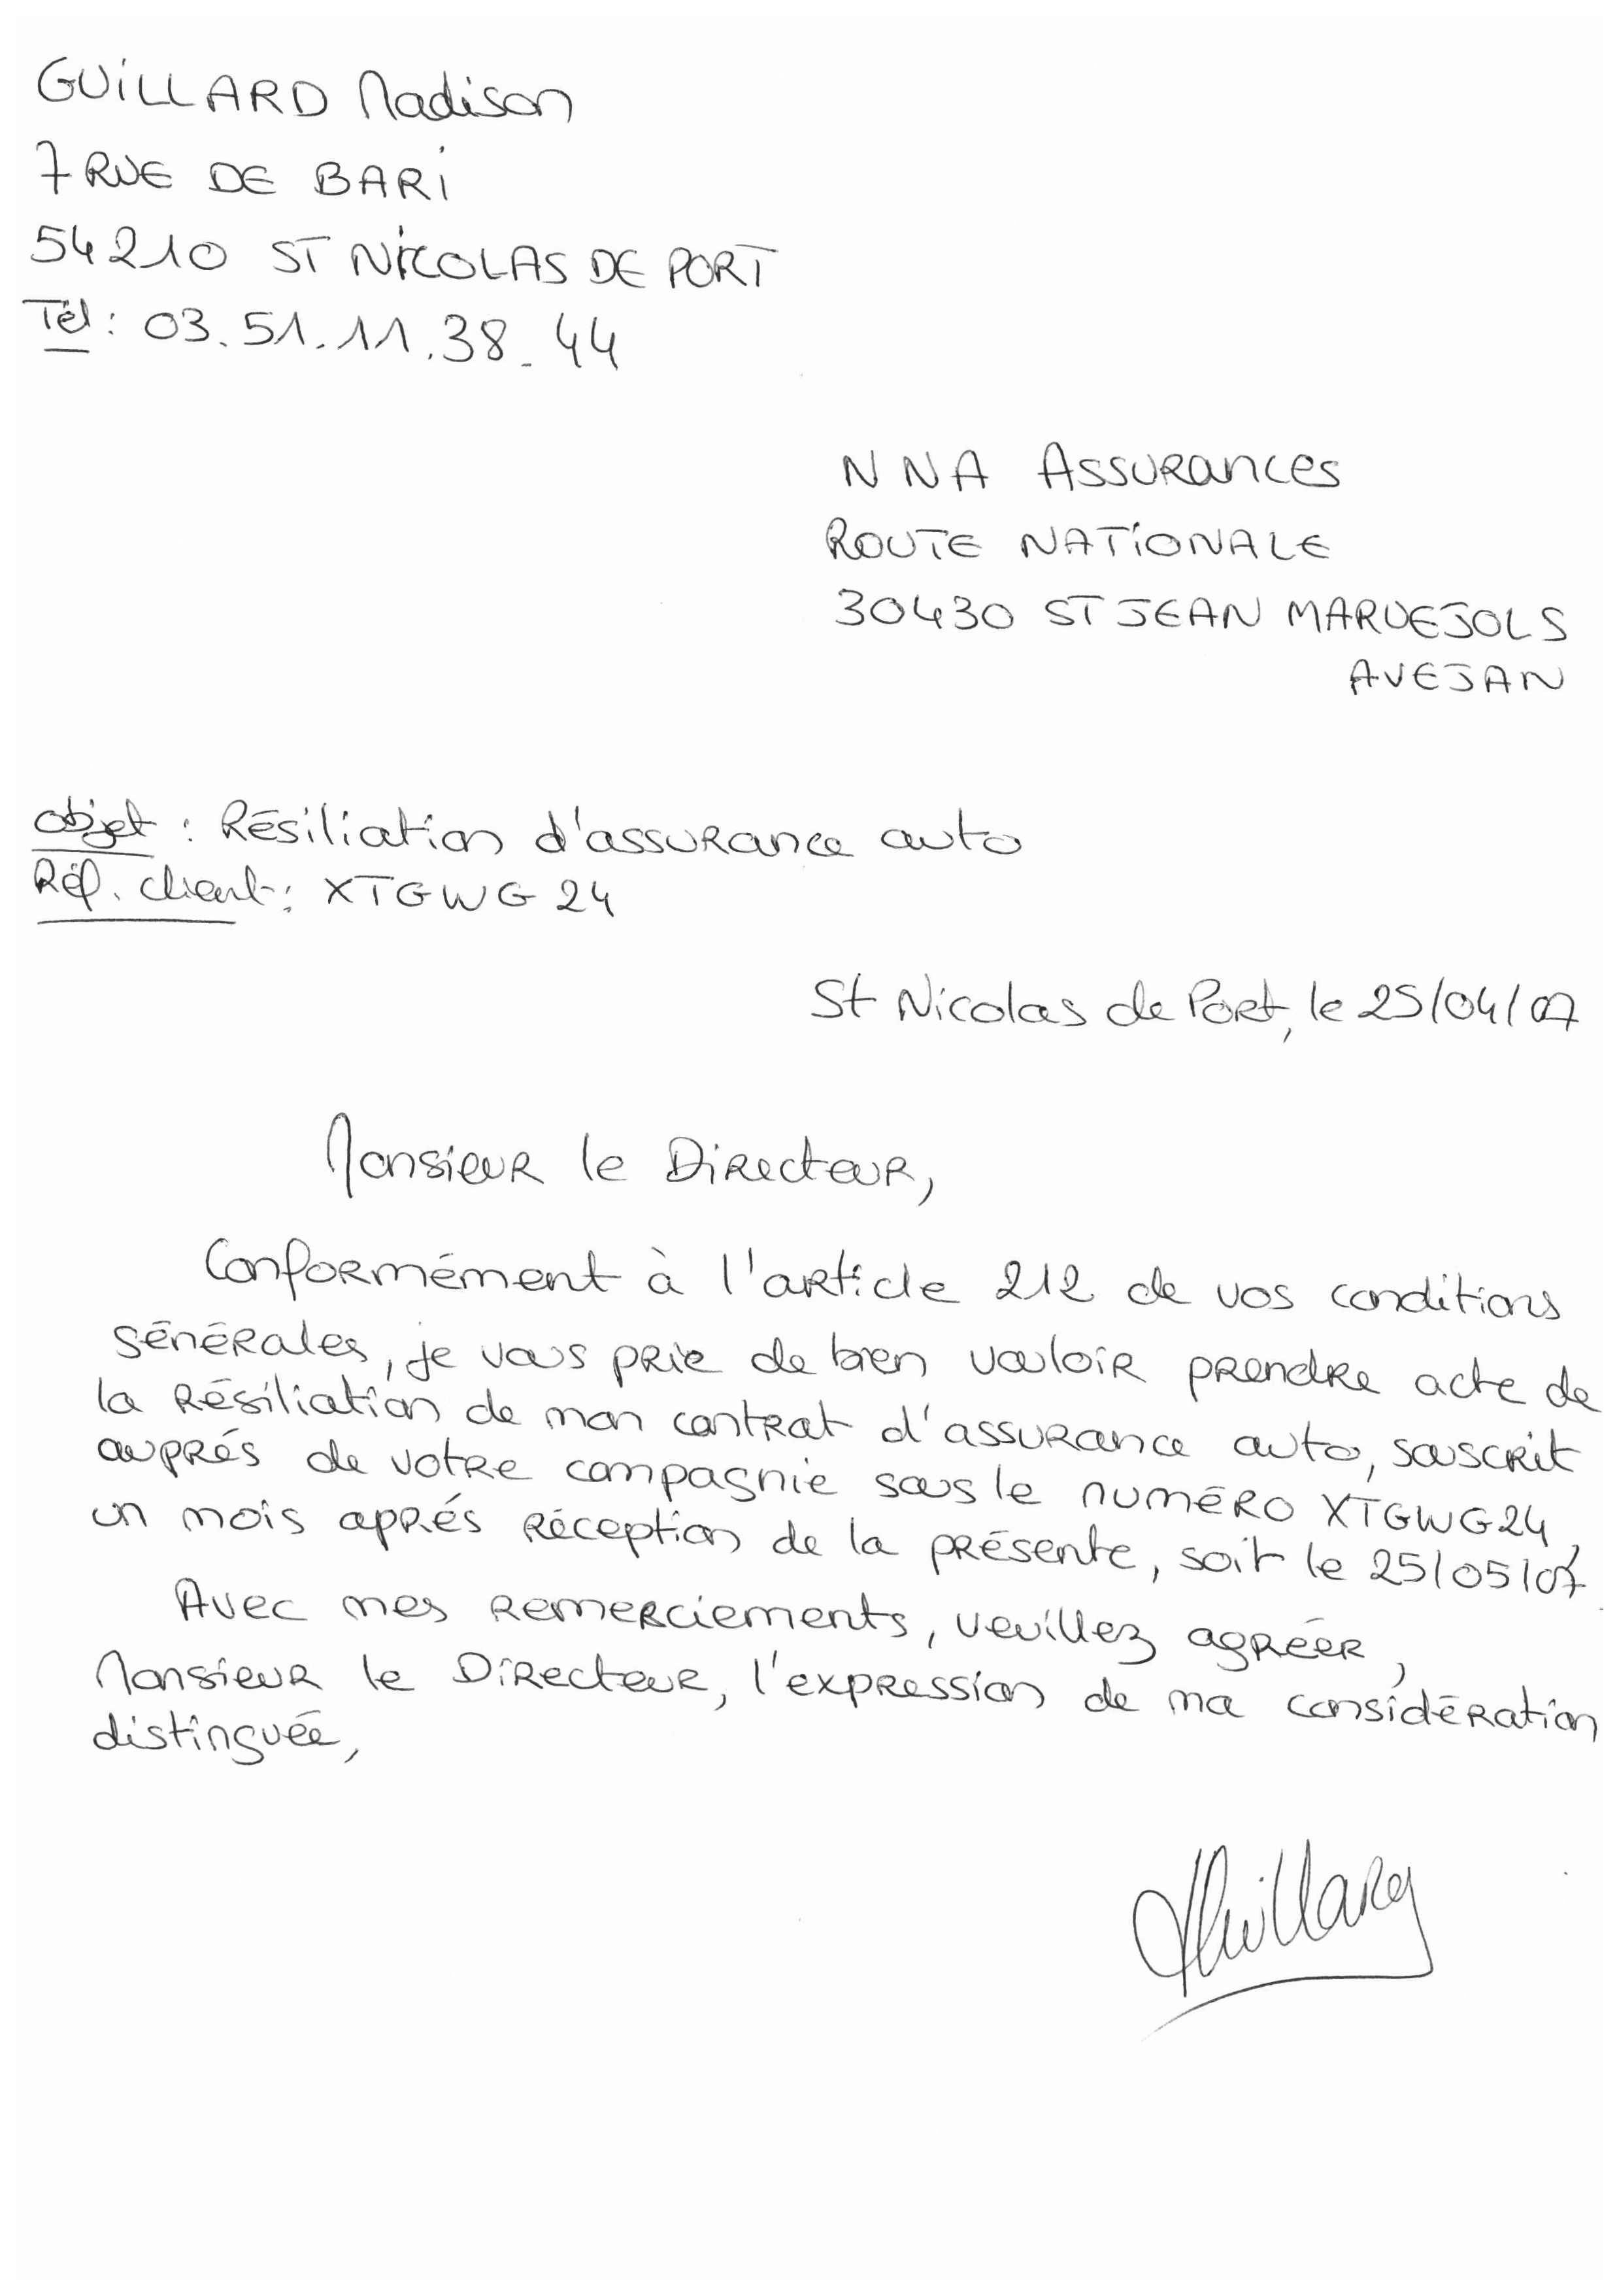 GUILLARD Madison
7 RUE DE BARI
54210 ST NICOLAS DE PORT
Tél : 03.51.11.38.44
NNA Assurances
ROUTE NATIONALE
30430 ST JEAN MARUEJOLS
AVEJAN
objet : Résiliation d'assurance auto
Réf. client : XTGWG24
St Nicolas de Port, le 25/04/07
Monsieur le Directeur,
Conformément à l'article 212 de vos conditions
générales, je vous prie de bien vouloir prendre acte de
la résiliation de mon contrat d'assurance auto, souscrit
auprés de votre compagnie sous le numéro XTGWG24,
un mois aprés réception de la présente, soit le 25/05/07.
Avec mes remerciements, veuillez agréer,
Monsieur le Directeur, l'expression de ma considération
distinguée,
Guillard